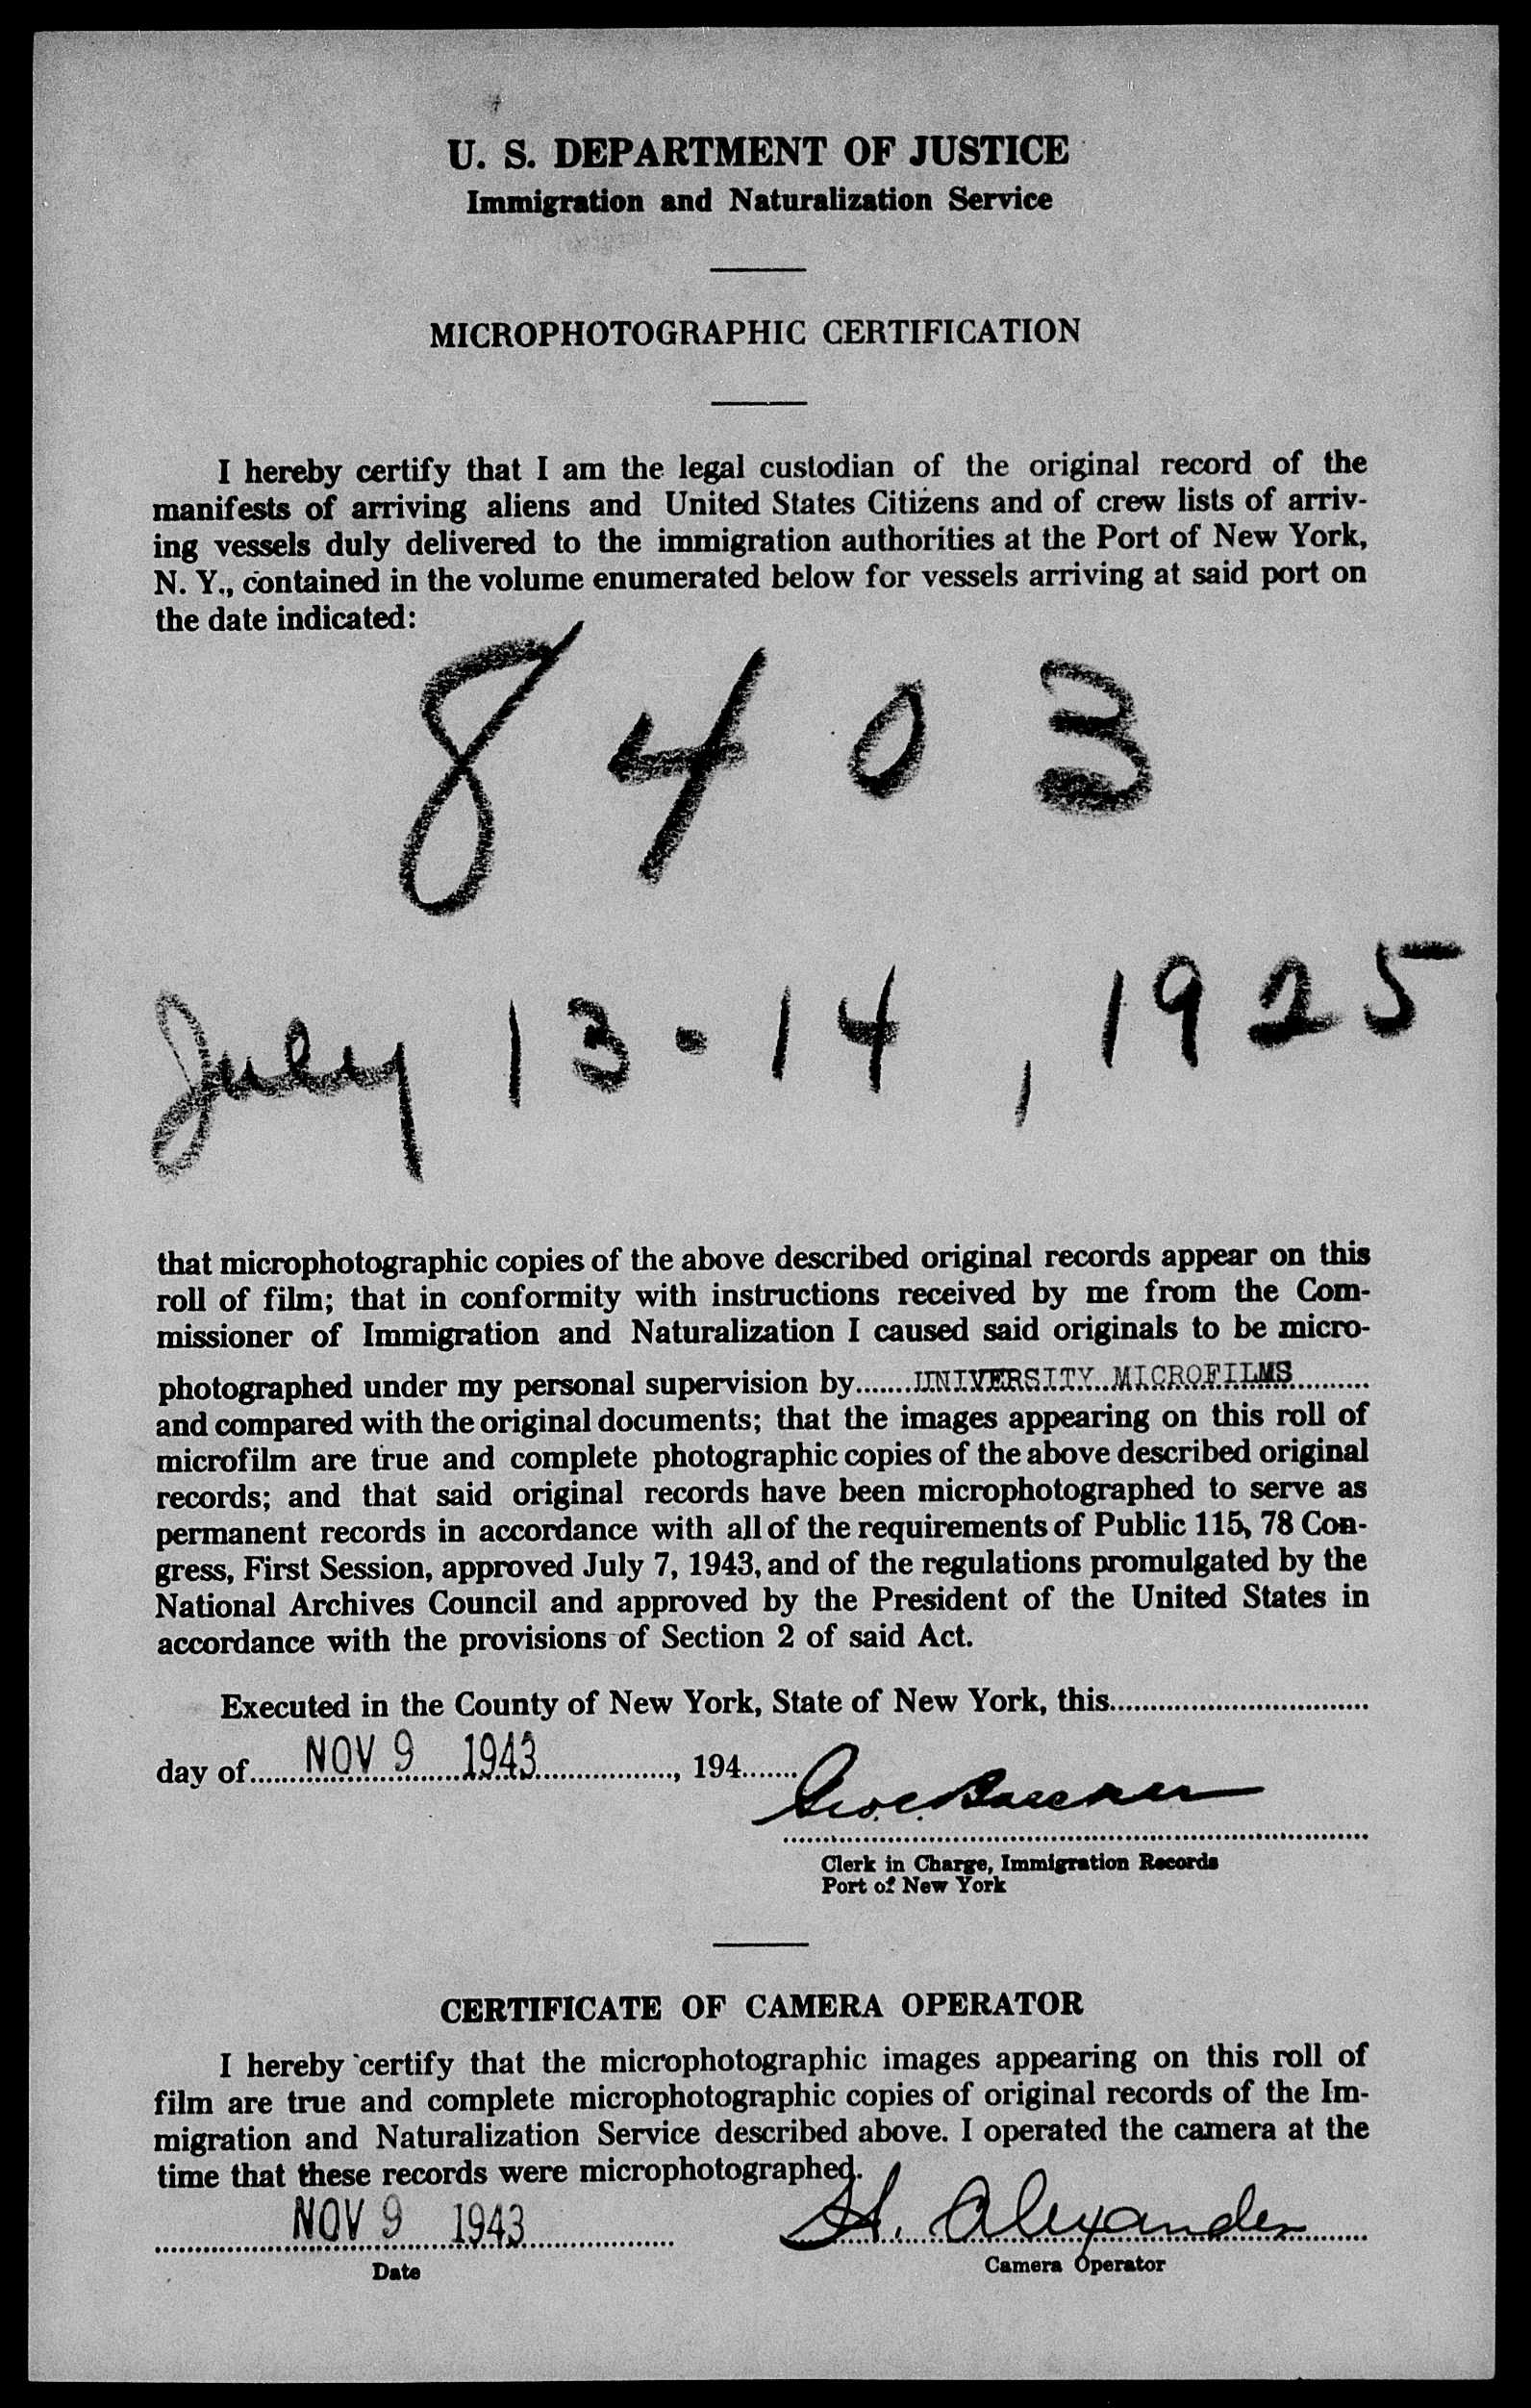 U. S. DEPARTMENT OF JUSTICE
Immigration and Naturalization Service
MICROPHOTOGRAPHIC CERTIFICATION
I hereby certify that I am the legal custodian of the original record of the
manifests of arriving aliens and United States Citizens and of crew lists of arriv-
ing vessels duly delivered to the immigration authorities at the Port of New York,
N. Y., contained in the volume enumerated below for vessels arriving at said port on
the date indicated:
8403
July 13-14, 1925
that microphotographic copies of the above described original records appear on this
roll of film; that in conformity with instructions received by me from the Com-
missioner of Immigration and Naturalization I caused said originals to be micro-
photographed under my personal supervision by.......UNIVERSITY MICROFILMS..........
and compared with the original documents; that the images appearing on this roll of
microfilm are true and complete photographic copies of the above described original
records; and that said original records have been microphotographed to serve as
permanent records in accordance with all of the requirements of Public 115, 78 Con-
gress, First Session, approved July 7, 1943, and of the regulations promulgated by the
National Archives Council and approved by the President of the United States in
accordance with the provisions of Section 2 of said Act.
Executed in the County of New York, State of New York, this................................
day of......NOV 9 1943................., 194.......
Clerk in Charge, Immigration Records
Port of New York
CERTIFICATE OF CAMERA OPERATOR
I hereby certify that the microphotographic images appearing on this roll of
film are true and complete microphotographic copies of original records of the Im-
migration and Naturalization Service described above. I operated the camera at the
time that these records were microphotographed.
NOV 9 1943 H. Alexander
Date Camera Operator